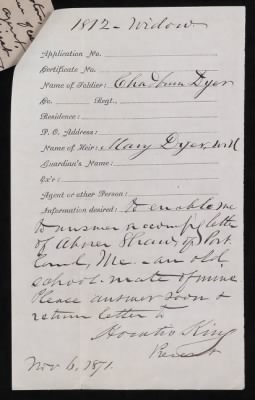 1812 - Widow
Application No.
Certificate No.
Name of Soldier: Chadburn Dyer
Co. Regt.,
Residence:
P. O. Address:
Name of Heir: Mary Dyer, Wid
Guardian's Name:
Ex'r:
Agent or other Person:
Information desired: to enable me
to answer accomp'g letter
of Abner Shaw, of Port
land, Me. - an old
school-mate of mine
Please answer soon &
return letter to
Horatio King
Nov 6. 1871.